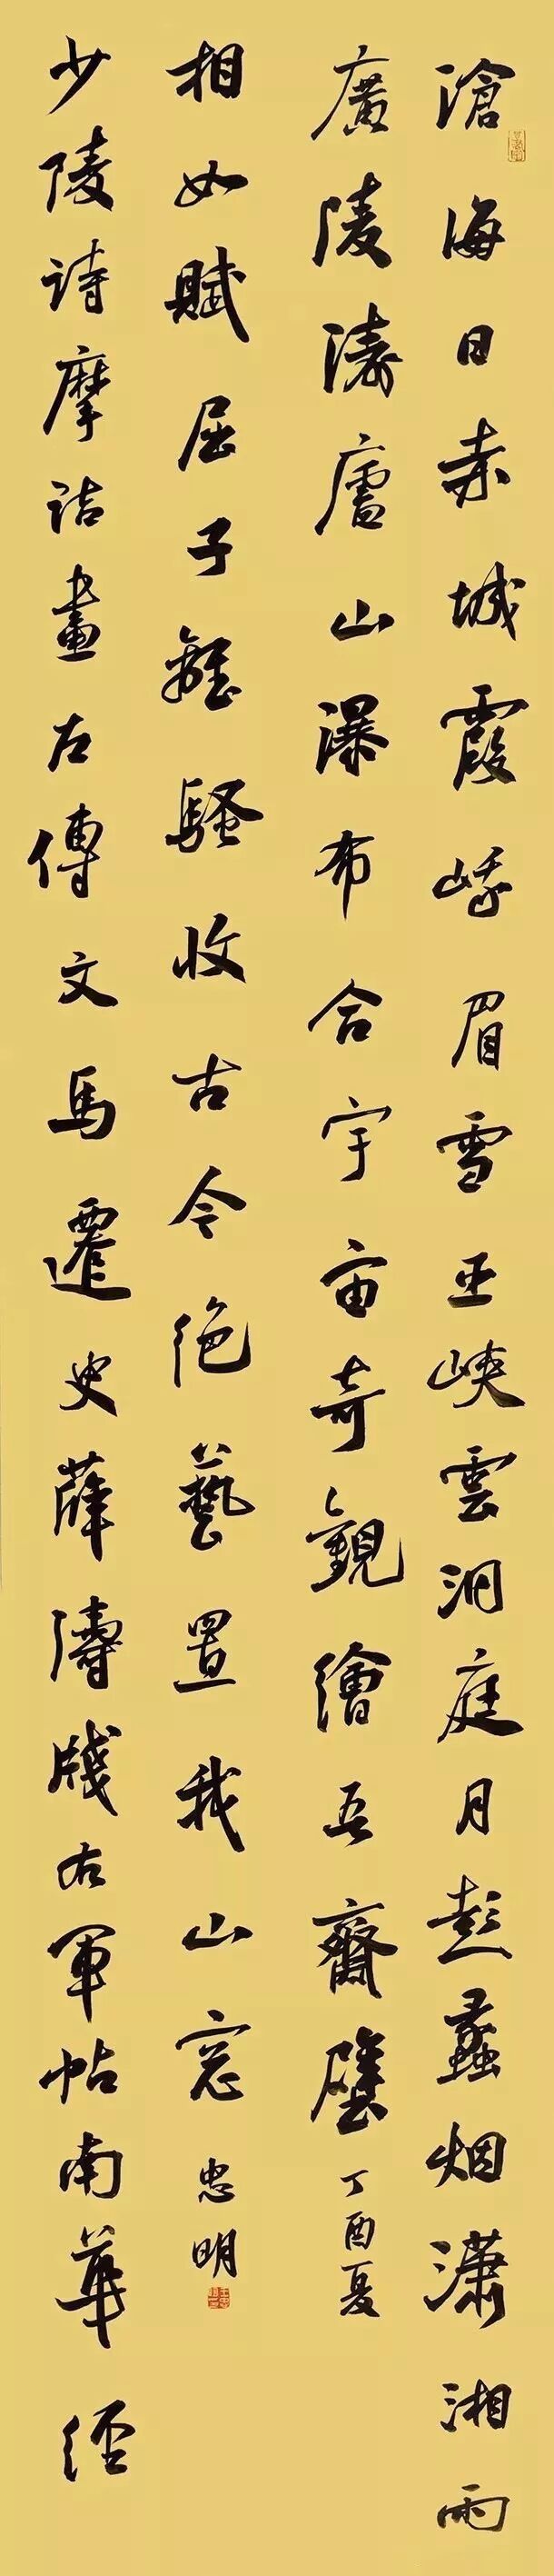 滄海日赤城霞峨眉雪巫峽雲洞庭月彭蠡烟瀟湘雨
廣陵濤廬山瀑布合宇宙奇觀繪吾齋壁 丁酉夏
少陵詩摩詰畫左傳文馬遷史薛濤牋右軍帖南華經
相如賦屈子離騷收古今絕藝置我山窓 忠明